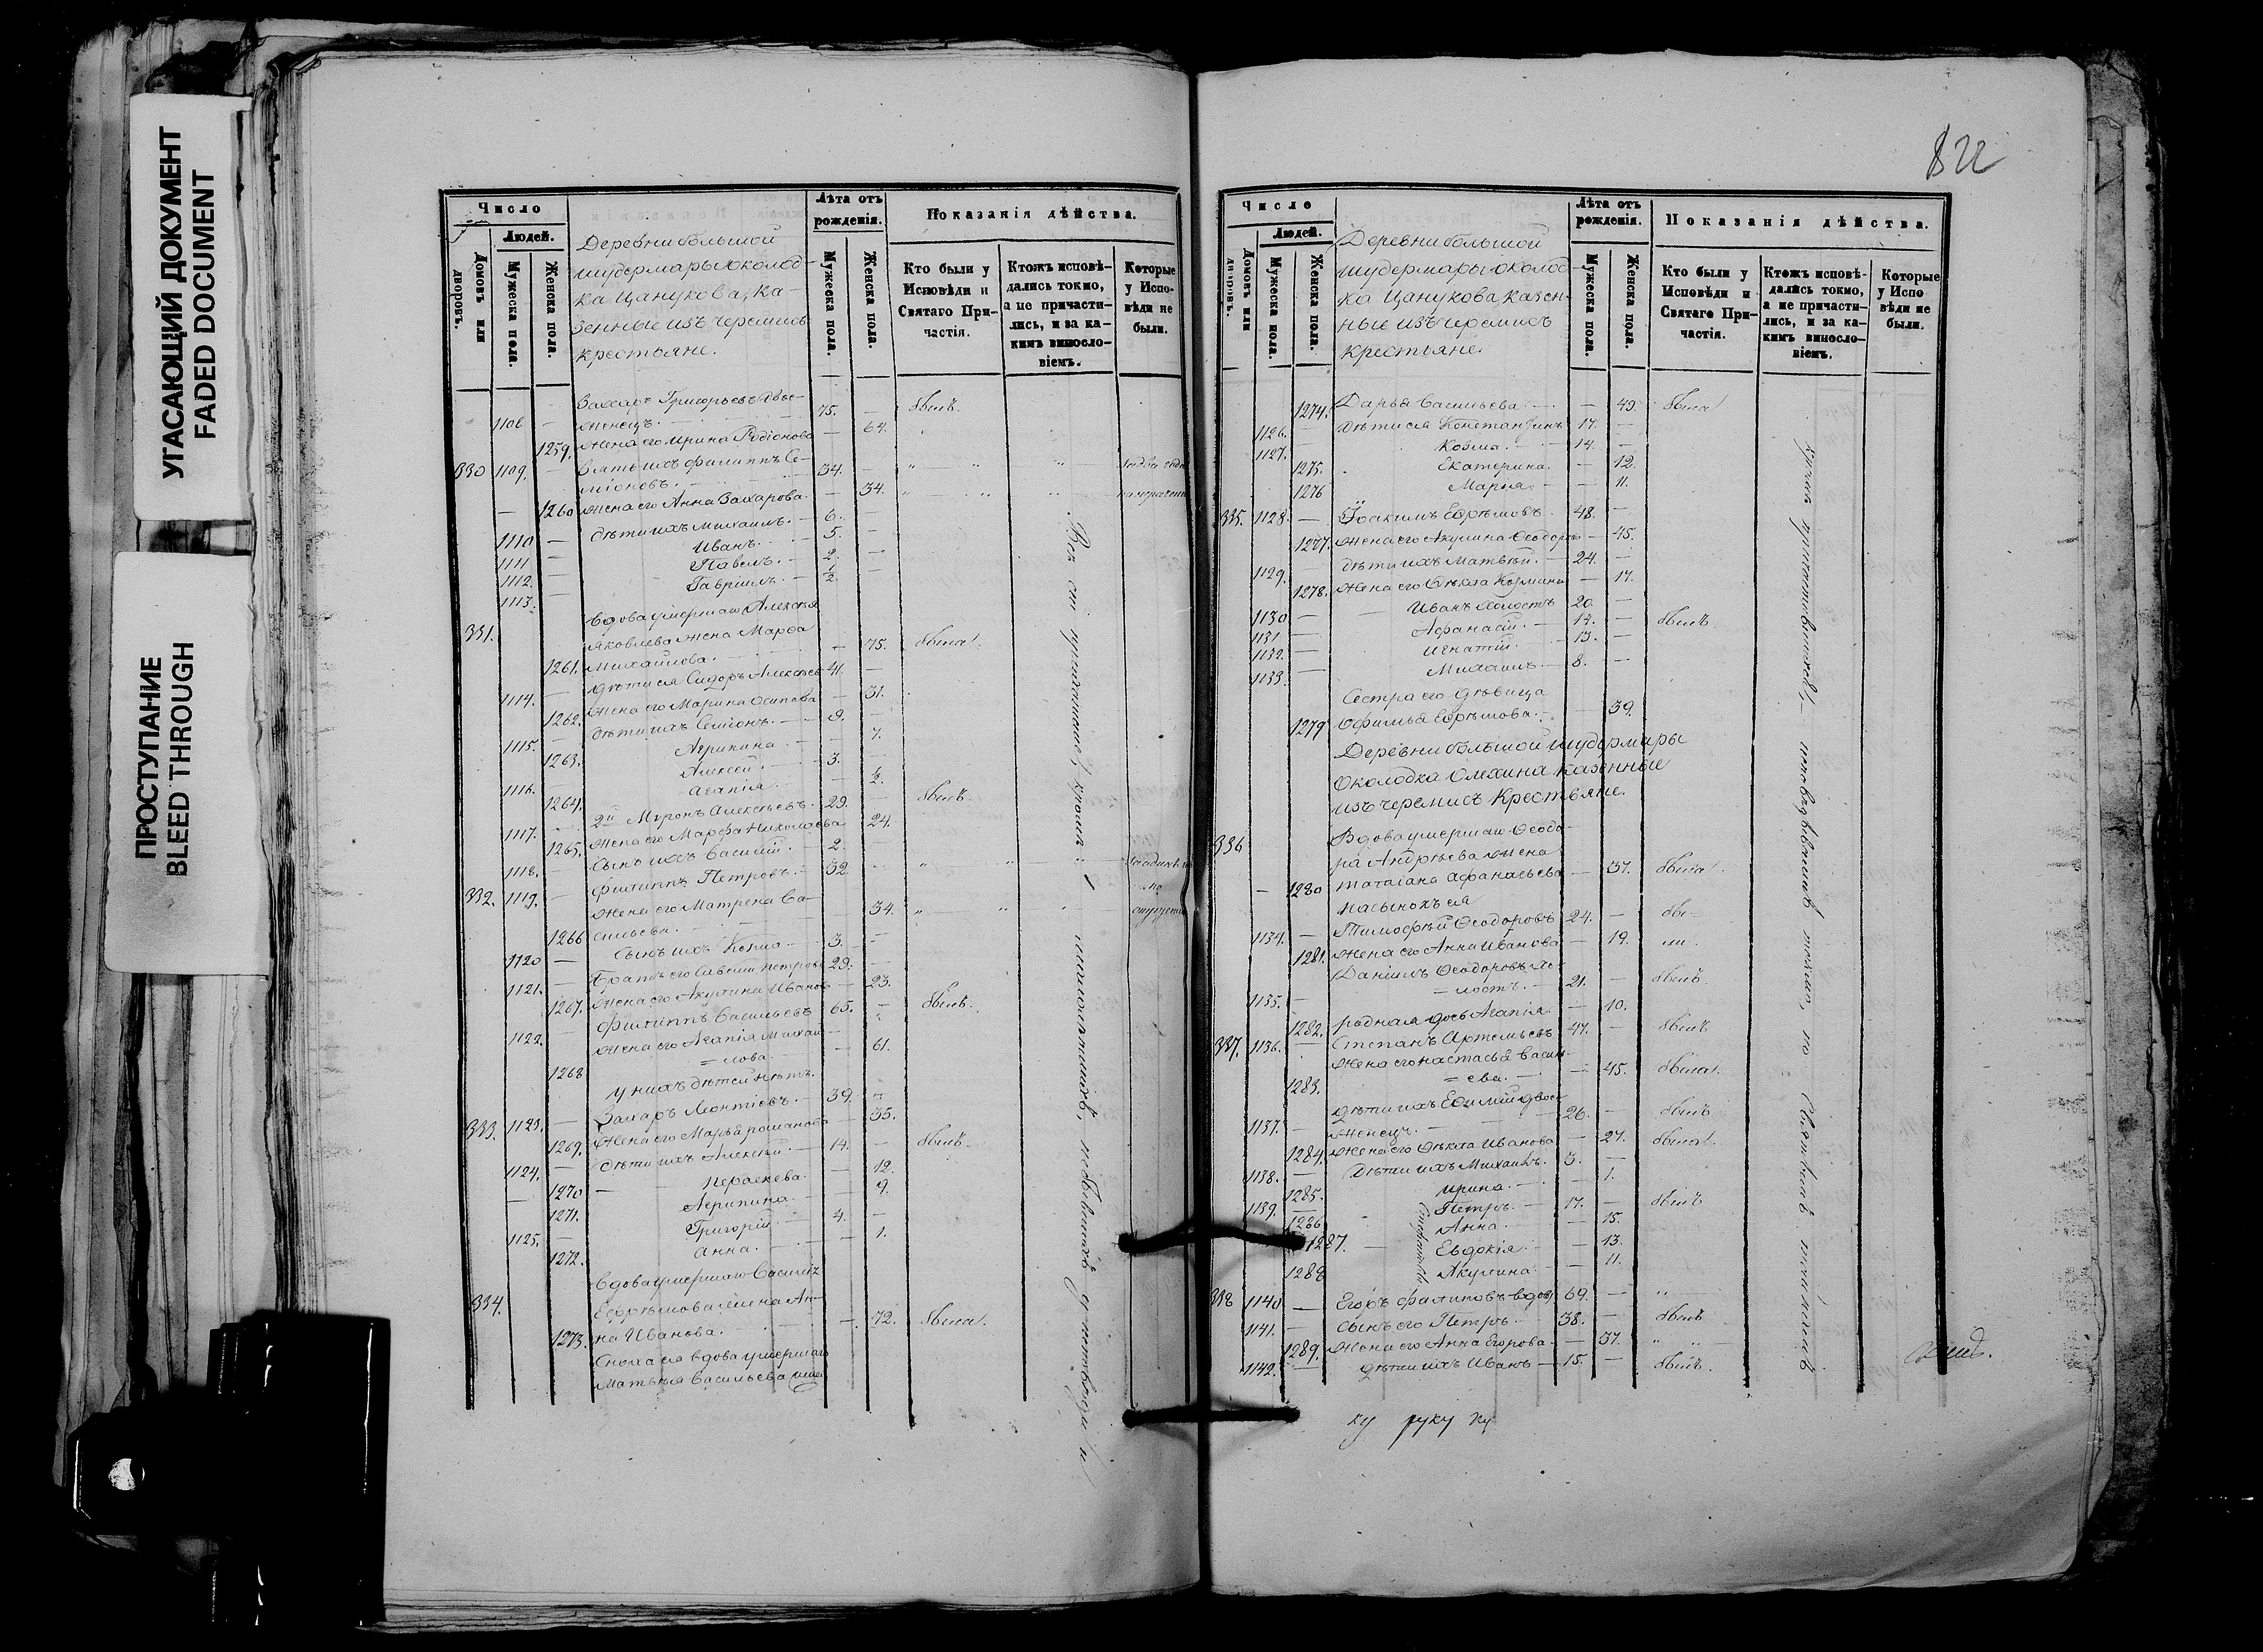 УГАСАЮЩИЙ ДОКУМЕНТ
FADED DOCUMENT
ПРОСТУПАНИЕ
BLEED THROUGH
Число
Людей.
Домовъ или дворовъ.
Мужеска пола.
Женска пола.
Деревни большой
шудермары околод-
ка Цанукова, ка-
зенные изъ черемисъ
крестьяне.
Лѣта отъ рожденія.
Мужеска пола.
Женска пола.
Показанія дѣйства.
Кто были у Исповѣди и Святаго При-частія.
Ктожъ исповѣ-дались токмо, а не причасти-лись, и за ка-кимъ винословіемъ.
Которые у Испо-вѣди не были.
Захаръ Григорьевъ двое-
1108 — женецъ. 75. — былъ.
1259. жена его Ирина Родіонова — 64.
330 1109. — зять ихъ Филиппъ Се-
міоновъ. 34. —
— 1260 жена его Анна Захарова. — 34.
1110 — дѣти ихъ Михаилъ. 6. —
1111 — Иванъ. 5.
1112. — Павелъ. 2. —
1113. — Гавріилъ. ½. —
331. вдова умершаго Алексѣя
Яковлева жена Марфа
1261. Михайлова. — 75. была.
1114. — дѣти ея Сидоръ Алексѣевъ 41. —
1262. жена его Марина Осипова — 31.
1115. — дѣти ихъ Семіонъ. 9. —
1263. Агрипина — 7.
1116. — Алексѣй. 3.
1264. Агапія — ½.
1117. — 2й Миронъ Алексѣевъ. 29. — былъ.
1265. жена его Марфа Николаева 24.
1118. — сынъ ихъ Василій. 2. —
332. 1119. — Филиппъ Петровъ. 32. —
жена его Матрена Ва-
1266 сильева. 34.
1120 — сынъ ихъ Козма 3. —
1121. — братъ его Савелій Петровъ 29. —
1267. жена его Акулина Иванова — 23.
1122. — Филиппъ Васильевъ 65. — былъ.
жена его Агапія Михай-
1268 = лова. — 61.
у нихъ дѣтей нѣтъ.
333. 1123. — Захаръ Леонтіевъ. 39.
1269. жена его Марья Романова — 35.
1124. — дѣти ихъ Алексѣй. 14. — былъ.
1270 — Пераскева — 12.
1271. Агрипина. — 9.
1125. — Григорій. 4. —
1272. Анна. — 1.
334. вдова умершаго Василія
Ефрѣмова жена Ан-
1273. на Иванова. — 72. была.
Сноха ея вдова умершаго
Матвѣя Васильева жена
Всѣ сіи прихожане, кромѣ малолѣтнихъ, небывшихъ у исповѣди и
822
Число
Людей.
Домовъ или дворовъ.
Мужеска пола.
Женска пола.
Деревни большой
шудермары околод-
ка Цанукова, казен-
ные изъ черемисъ
крестьяне.
Лѣта отъ рожденія.
Мужеска пола.
Женска пола.
Показанія дѣйства.
Кто были у Исповѣди и Святаго При-частія.
Ктожъ исповѣ-дались токмо, а не причасти-лись, и за ка-кимъ винословіемъ.
Которые у Испо вѣди не были.
1274. Дарья Васильева — 49. была.
1126. — дѣти ея Константинъ 17. —
1127. Козма. 14. —
1275. Екатерина. — 12.
1276 Марія. — 11.
335. 1128. — Іоакимъ Ефрѣмовъ 48. —
1277. жена его Акулина Ѳеодоров — 45.
1129. — дѣти ихъ Матвѣй. 24. —
1278. жена его Ѳекла — 17.
1130 — Иванъ холостъ 20. —
1131 — Афанасій. 17. — былъ
1132. — Игнатій. 13. —
1133. Михаилъ 8. —
Сестра его дѣвица
1279 Ефимья Ефрѣмова. 39.
Деревни большой шудермары
околодка Олехина казенные
изъ черемисъ крестьяне.
336 Вдова умершаго Ѳеодо-
ра Андрѣева жена
— 1280 Татіана Афанасьева — 37. была.
пасынокъ ея
1134. — Тимофѣй Ѳеодоровъ 24. — бы-
1281. жена его Анна Иванова — 19. ли.
Даніилъ Ѳеодоровъ хо-
1135. — = лостъ. 21. — былъ.
1282. родная дочь Агапія. — 10.
337. 1136. — Степанъ Артемьевъ 47. — былъ
жена его Настасья Василь-
1283. = ева. — 45. была.
дѣти ихъ Евѳимій двое-
1137. — женецъ. 26. — былъ
1284. жена его Ѳекла Иванова — 27. была.
1138. — дѣти ихъ Михаилъ. 3. —
1285. Ирина. — 1.
1139. — Петръ. 17. — былъ
1286 Анна. — 15.
1287. — Евдокія — 13.
1288 Акулина. — 11.
338 1140 — Егоръ Филиповъ вдовъ 69. —
1141. — сынъ его Петръ. 38. — былъ
1289. жена его Анна Егорова — 37.
1142. — дѣти ихъ Иванъ 15. — былъ.
ку руку ку